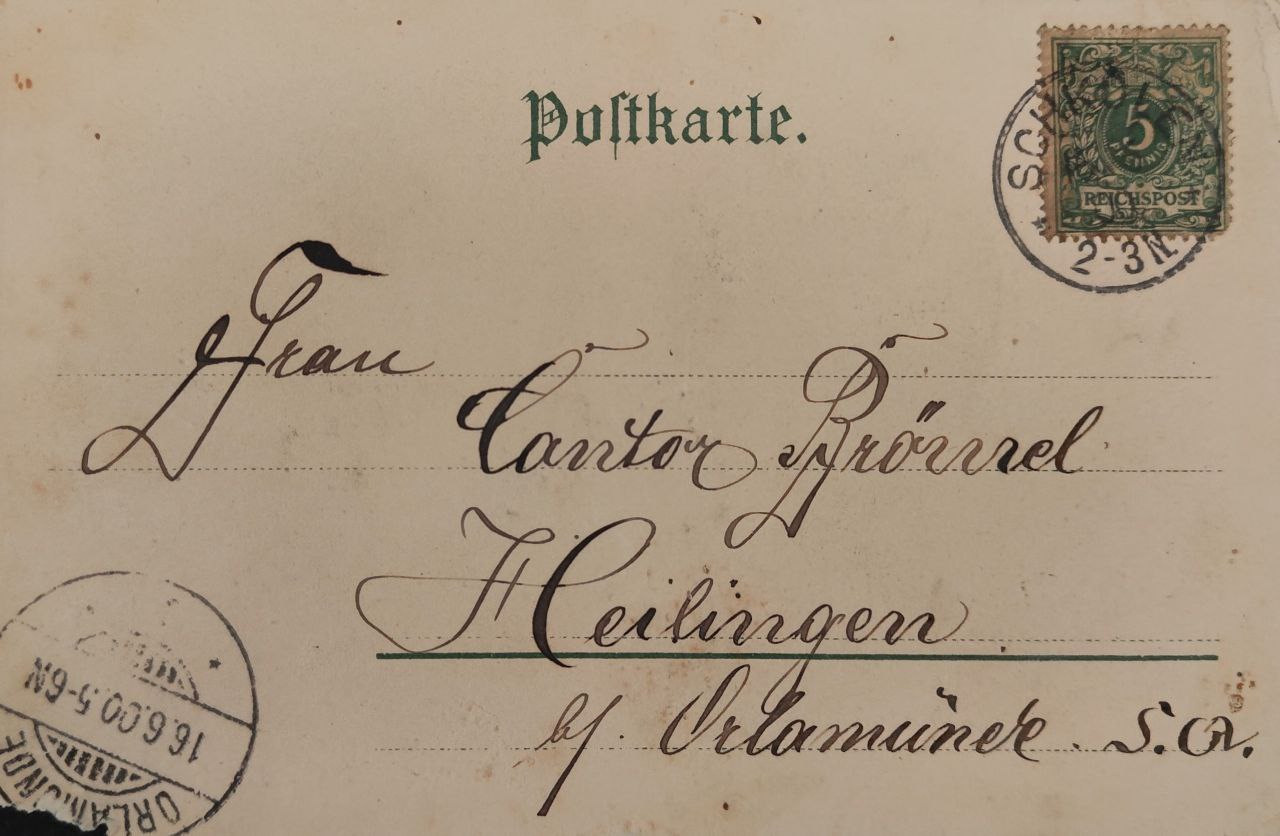 Postkarte.
5
PFENNIG
REICHSPOST
2-3N
Frau
Cantor Brömel
Heilingen
b/. Orlamünde. S. A.
16.6.00.5-6N
ORLAMÜNDE